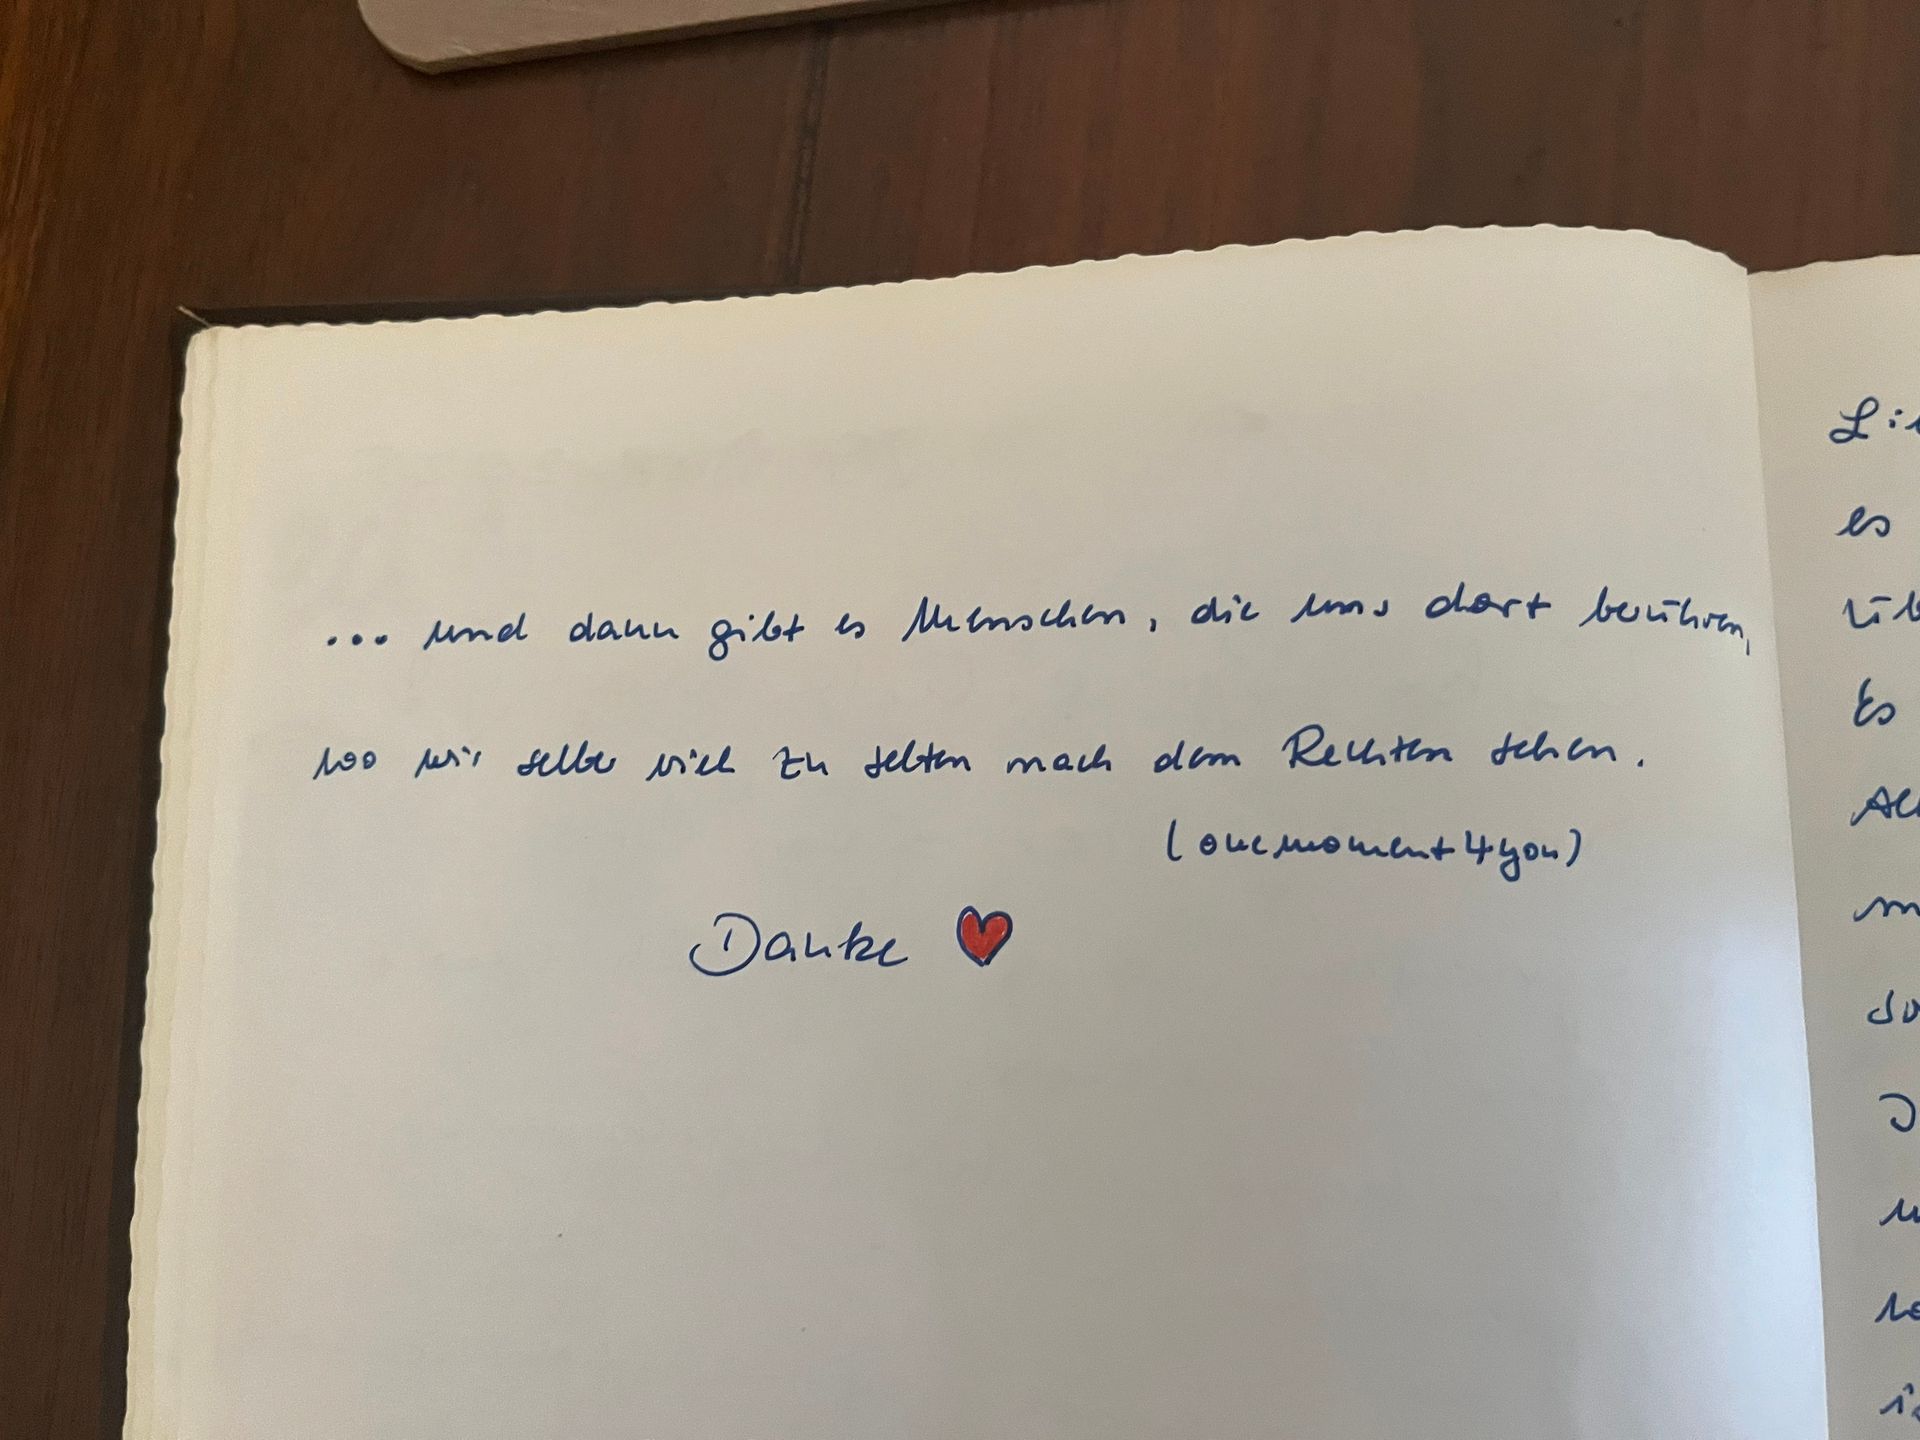 ... und dann gibt es Menschen, die uns dort berühren,
wo wir selber viel zu selten nach dem Rechten sehen.
(onemoment4you)
Danke ❤
es
Es